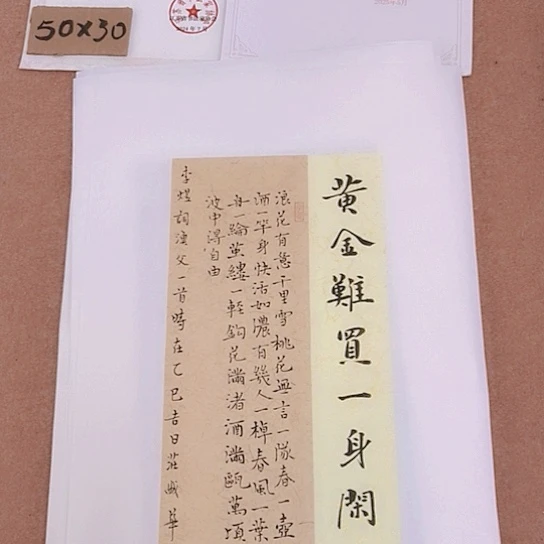 50X30
黄金難買一身閑
浪花有意千里雪桃花無言一隊春一壺
酒一竿身快活如儂有幾人一棹春風一葉
舟一綸茧縷一輕鈎花滿渚酒滿甌萬頃
波中得自由
李煜詞漁父一首時在乙巳吉日莊華